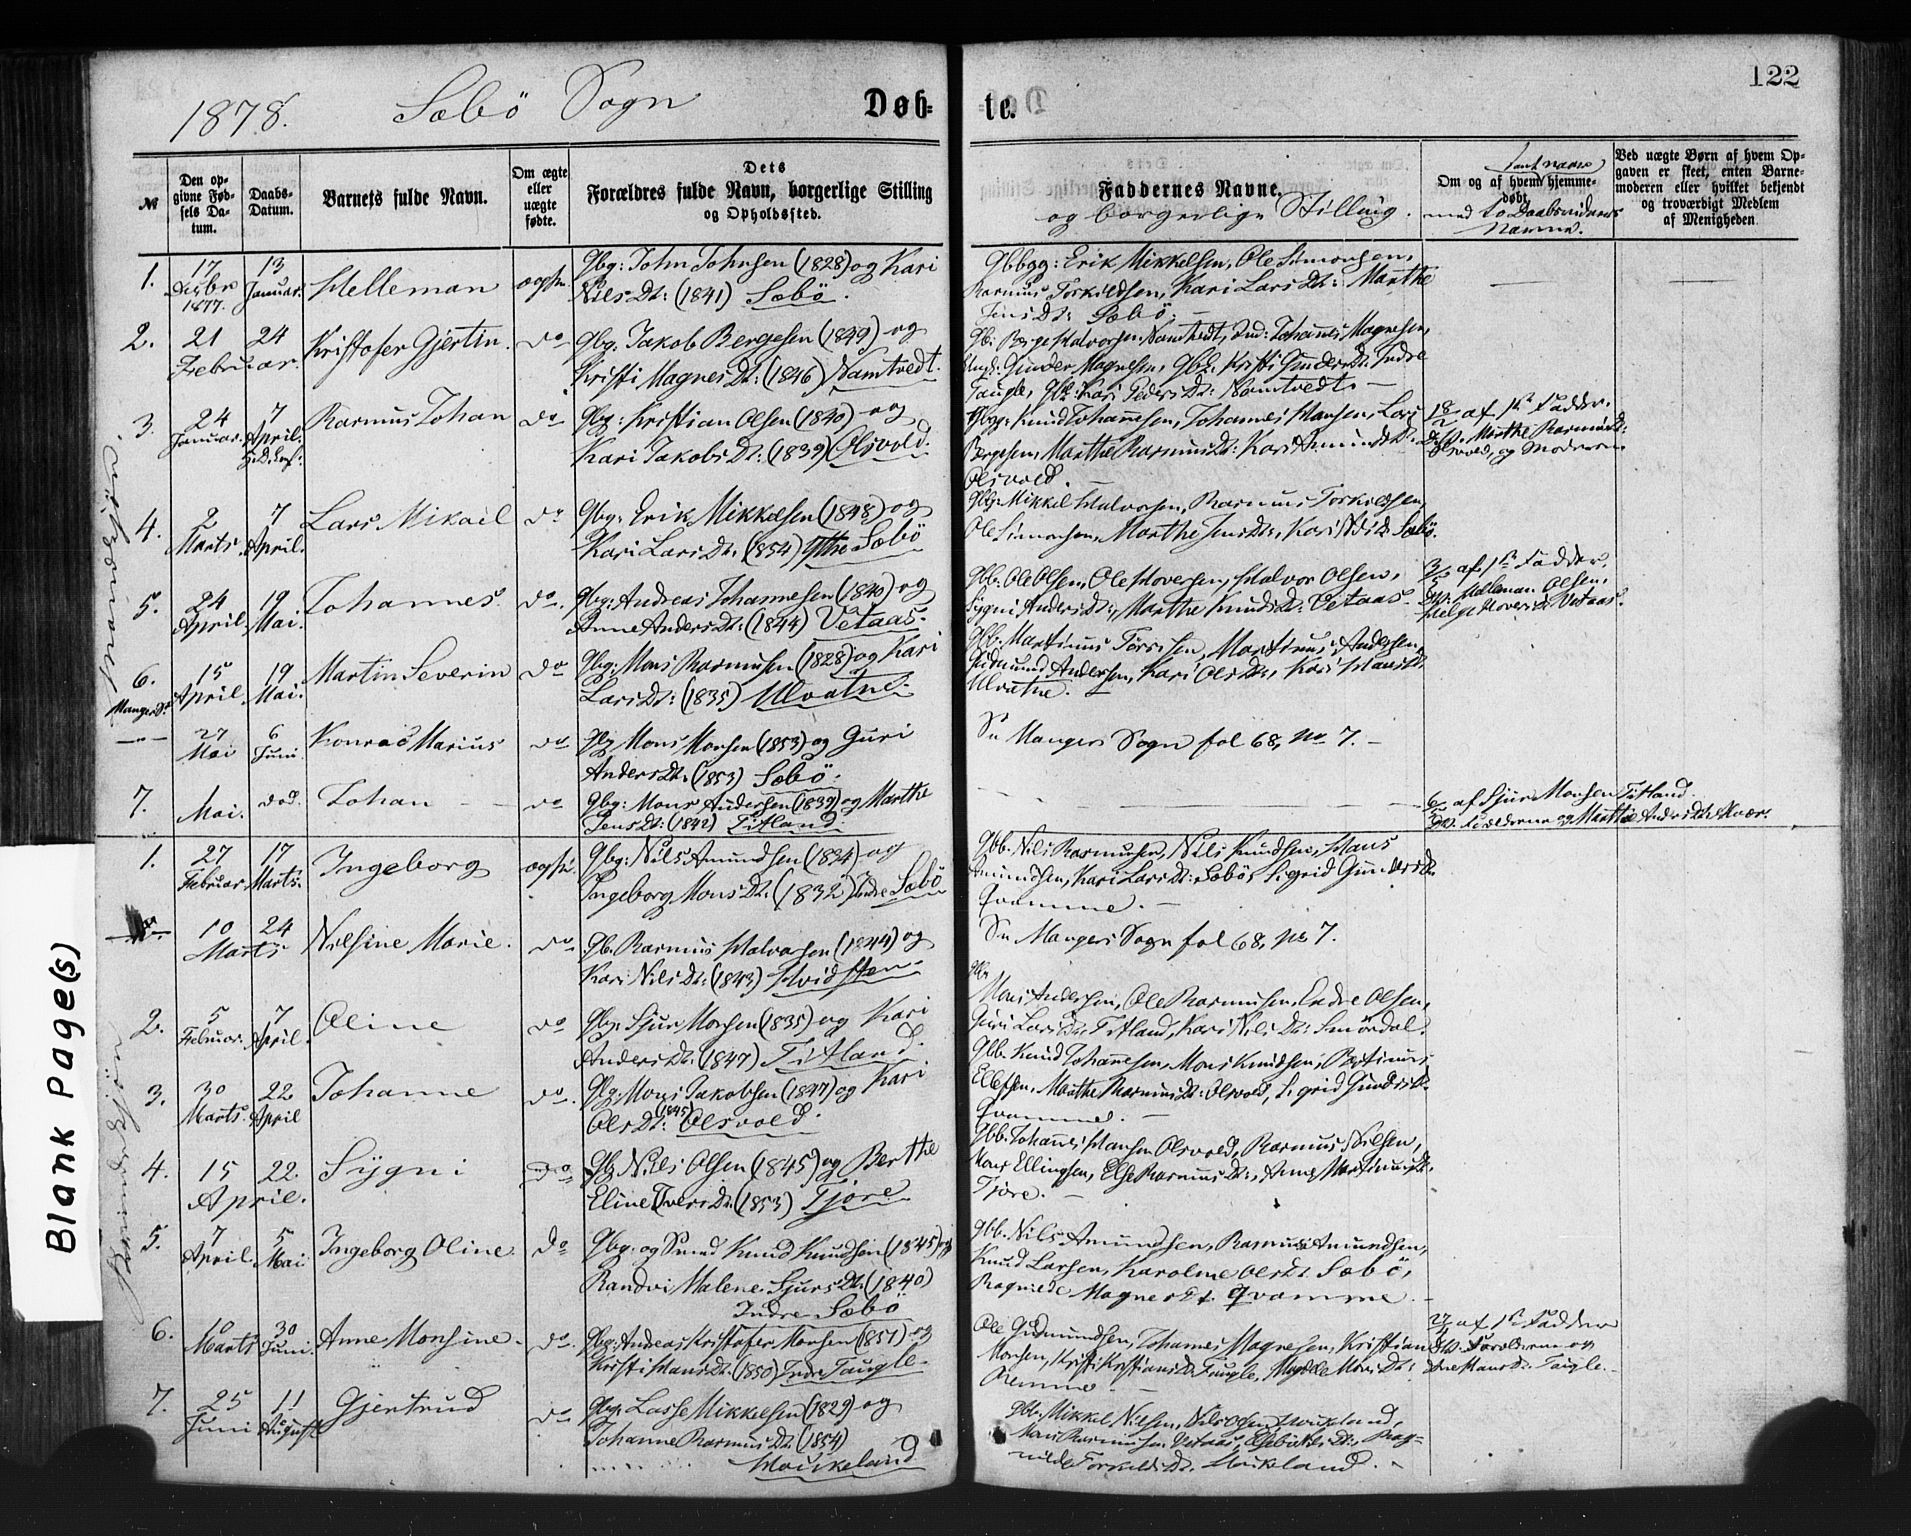 122
1878. Sæbö Sogn Døb- te.
№
Den op-
givne Fød-
sels Da-
tum.
Daabs-
Datum.
Barnets fulde Navn.
Om ægte
eller
uægte
fødte.
Dets
Forældres fulde Navn, borgerlige Stilling
og Opholdssted.
Faddernes Navne.
og borgerlige Stilling.
samt naar
Om og af hvem hjemme-
døbt
med to Daabsvidners
Navne.
Ved uægte Børn af hvem Op-
gaven er skeet, enten Barne-
moderen eller hvilket bekjendt
og troværdigt Medlem
af Menigheden.
Mandkjön.
1. 17 Decbr 1877. 13 Januar. Helleman ægte. Gbg: John Johnsen (1828) og Kari
Nils Dt: (1841) Sæbö.
Gbbgg: Erik Mikkelsen, Ole Simonsen,
Rasmus Torkildsen, Kari Lars Dt: Marthe
Jens Dt: Sæbö. —
2. 21 24 Februar. Kristofer Gjertin. do Gbg: Jakob Bergesen (1849) og
Kristi Magnes Dt: (1846) Namtvedt.
Gb: Berge Halvorsen Namtvedt, Ind: Johannes Magnesen,
Ungk: Gunder Magnesen, Gbg: Kristi Gunders Dt: Indre
Taugle, Gbg: Kari Peders Dt: Namtvedt. —
3. 24 Januar. 7 April. Rasmus Johan do Gbg: Kristian Olsen (1840) og
Kari Jakobs Dt: (1839) Olsvold.
Gbgg: Knud Johannesen, Johannes Hansen, Lars
Bergesen, Marthe Rasmus Dt: Kari Amunds Dt:
Olsvold.
18/2 af 1ste Fadder.
Dv. Marthe Rasmus Dt:
Olsvold, og Moderen.
4. 2 Marts. 7 April. Lars Mikael do Gbg: Erik Mikkelsen (1848) og
Kari Lars Dt: (1854) Ytre Sæbö
Gbg: Mikkel Halvorsen, Rasmus Torkildsen,
Ole Simonsen, Marthe Jens Dt:, Kari Nils Dt: Sæbö.
5. 24 April 19 Mai. Johannes. do. Gbg: Andreas Johannesen (1840) og
Anne Anders Dt: (1844) Vetaas.
Gbb: Ole Olsen, Ole Hoversen, Halvor Olsen,
Sygni Anders Dt:, Marthe Knuds Dt: Vetaas.
3/5 af 1ste Fadder.
Dv: Helleman Olsen,
Helge Hovers Dt: Vetaas.
6. 15 April. 19 Mai. Martin Severin do Gbg: Mons Rasmusen (1828) og Kari
Lars Dt: (1835) Ulvatne.
Gbb: Martinus Torssen, Martinus Andersen,
Gudmund Andersen, Kari Ols Dt:, Kari Hans Dt:
Ulvatne. —
Manger S.
27 Mai 6 Juni Konrad Marius do Gbg Mons Monsen (1853) og Guri
Anders Dt: (1853) Sæbö.
Se Mangers Sogn fol 68, No 7. —
7. Mai. död. Johan — do Gbg: Mons Andersen (1839) og Marthe
Jens Dt: (1842) Titland.
6/5 af Sjur Monsen Titland.
Dv. Forældrene og Marthe Anders Dt: Kvær.
Kvindekjön.
1. 27 Februar 17 Marts. Ingeborg ægte. Gbg: Nils Amundsen (1824) og
Ingeborg Mons Dt: (1832) Indre Sæbö
Gbb: Nils Rasmusen, Nils Knudsen, Hans
Amundsen, Kari Lars Dt: Sæbö, Sigrid Gunders Dt:
Qvamme. —
10 24 Marts Nilsine Marie. do. Gb. Rasmus Halvorsen (1844) og
Kari Nils Dt: (1843) Hvidsten.
Se Mangers Sogn fol 68, No 7.
2. 5 Februar. 7 April. Oline do Gbg. Sjur Monsen (1835) og Kari
Anders Dt: (1847) Titland.
Gbr
Mons Andersen, Ole Rasmusen, Endre Olsen,
Guri Lars Dt: Titland, Kari Nils Dt: Smördal.
3. 30 Marts. 22 April Johanne do. Gbg: Mons Jakobsen (1847) og Kari
Ols Dt: (1845) Olsvold.
Gbb: Knud Johannesen, Mons Knudsen, Bertinus
Ellefsen, Marthe Rasmus Dt: Olsvold, Sigrid Gunders Dt:
Qvamme. —
4. 15 22 April. Sygni do Gbg Nils Olsen (1845) og Berthe
Eline Ivers Dt: (1853) Tjore.
Gbb: Johannes Hansen Olsvold, Rasmus Nilsen,
Mons Ellingsen, Else Rasmus Dt:, Anne Martinus Dt:
Tjore. —
5. 7 April 5 Mai Ingeborg Oline do Gbg. og Smed Knud Knudsen (1845) og
Randvi Malene Sjurs Dt: (1840)
Indre Sæbö
Gbb. Nils Amundsen, Rasmus Amundsen,
Knud Larsen, Karoline Ols Dt. Sæbö,
Ragnilde Magnes Dt. Qvamme. —
6. 10 Marts 30 Juni. Anne Monsine. do. Gbg: Andreas Kristofer Monsen (1851) og
Kristi Hans Dt: (1850) Indre Taugle.
Ole Gudmundsen, Johannes Magnesen, Kristian
Monsen, Kristi Kristians Dt: Taugle, Magdele Mons Dt:
Remme. —
af 1ste Fadder
Dv. Forældrene og
Ane Hans Dt: Taugle.
7. 25 Juni 11 August Gjertrud do Gbg: Lasse Mikkelsen (1829) og
Johanne Rasmus Dt: (1854)
Haukeland
Gbb. Mikkel Nilsen, Nils Olsen Haukeland,
Mons Rasmusen Vetaas, Dt:, Rag-
nilde Torkilds Dt. Haukeland. —
Blank Page(s)